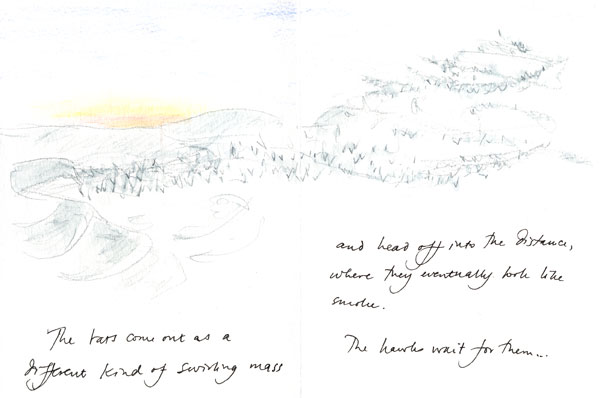 The bats come out as a
different kind of swirling mass
and head off into the distance,
where they eventually look like
smoke.
The hawks wait for them...